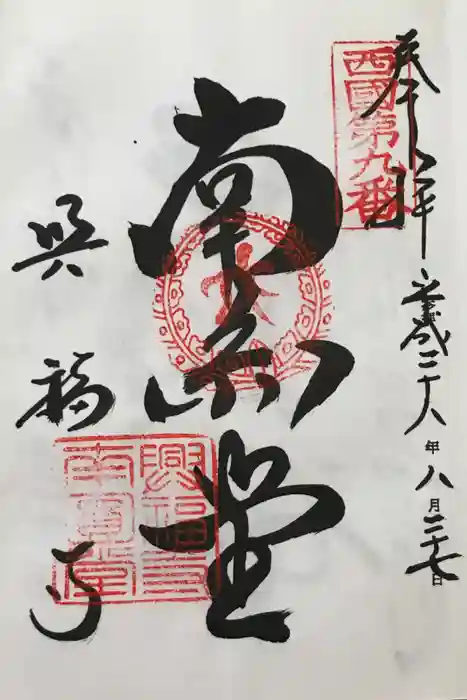 奉拝
西國第九番
平成二十八年八月二十七日
南円堂
興福寺
興福寺
南圓堂